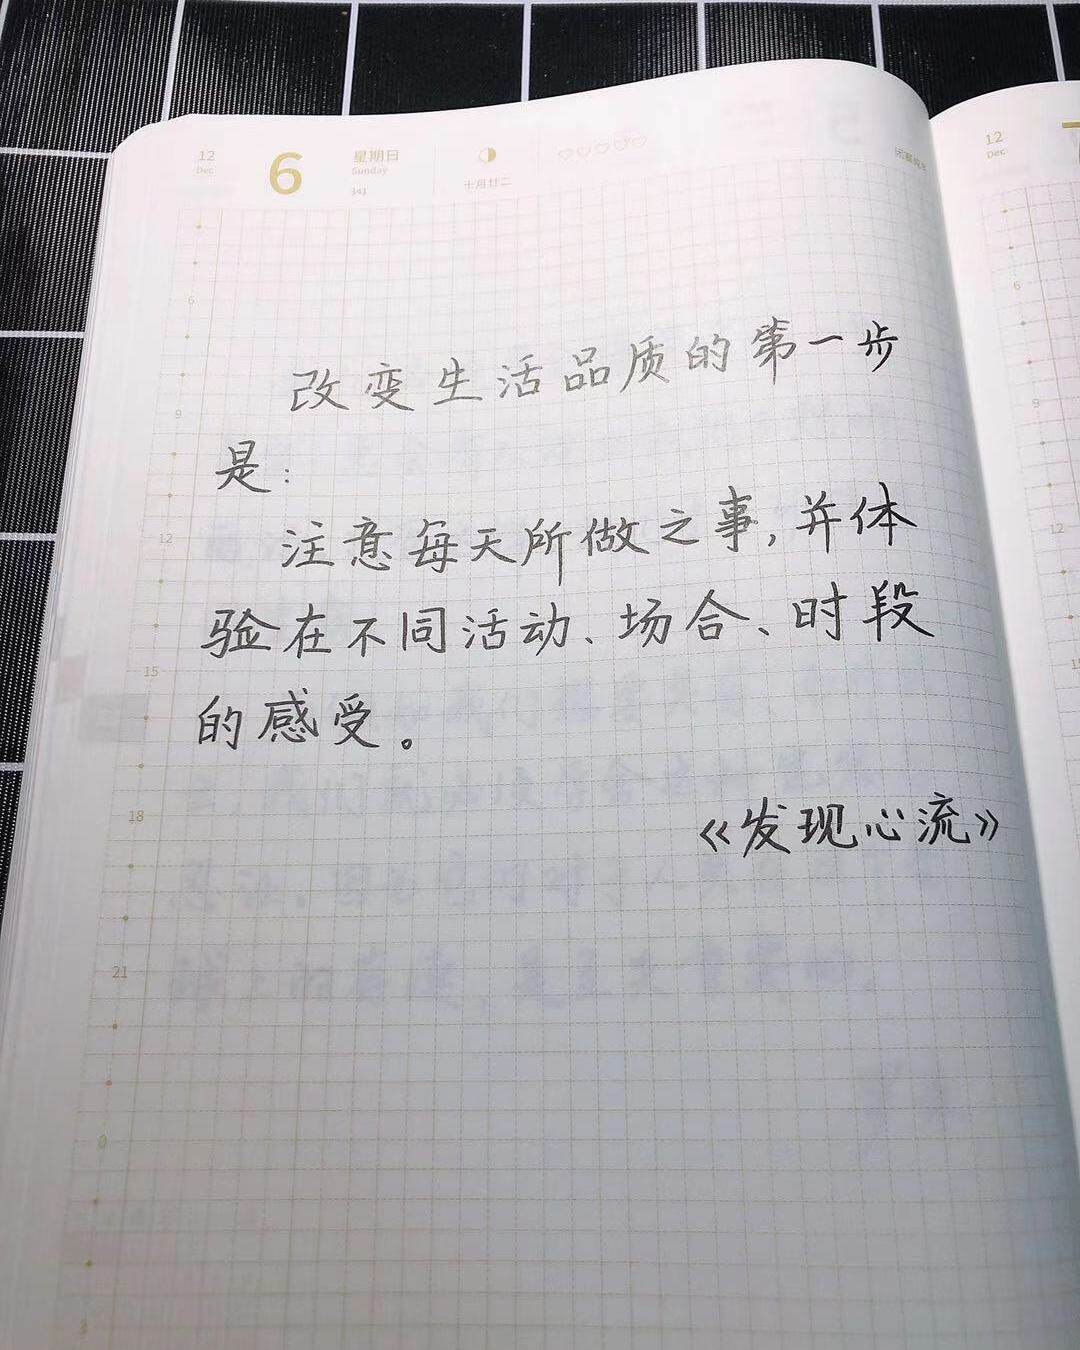 12
Dec
6
星期日
Sunday
341
十月廿二
12
Dec
6
9
12
15
18
21
0
3
6
9
12
改变生活品质的第一步
是:
注意每天所做之事,并体
验在不同活动、场合、时段
的感受。
《发现心流》